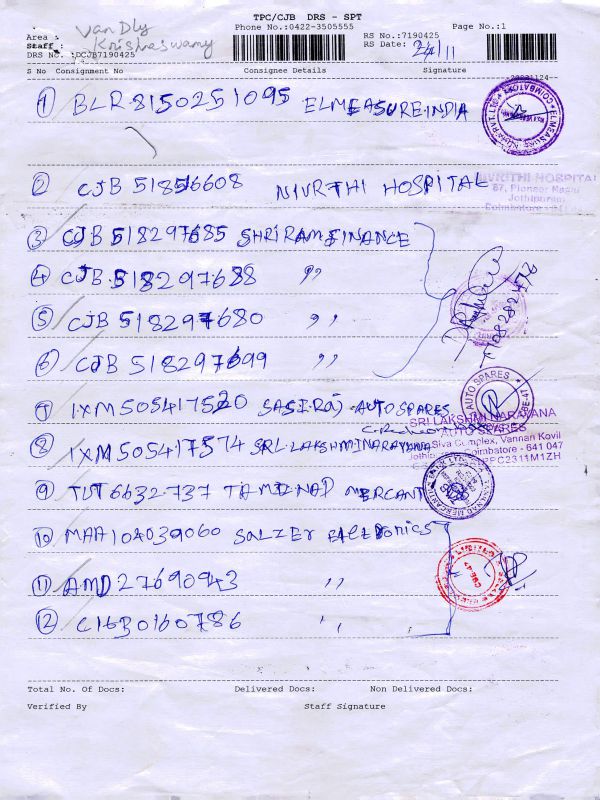 TPC/CJB DRS - SPT
Phone No.:0422-3505555
Page No.:1
Area :
Van Dly
Staff :
Krishnaswamy
RS No.:7190425
RS Date: 24/11
DRS No. :DCJB7190425
S No Consignment No Consignee Details Signature
1 BLR8150251095 ELMEASURE INDIA
2 CJB 51856608 NIVRTHI HOSPITAL
NIVRITHI HOSPITAL
87, Pioneer Nagar
Jothipuram
Coimbatore
3 CJB 518297685 SHRIRAM FINANCE
4 CJB 518297688 ,,
5 CJB 518297680 ,,
6 CJB 518297699 ,,
7 IXM 505417520 SASIRAJ AUTO SPARES
AUTO SPARES
8 IXM 505417574 SRI LAKSHMINARAYANA
SRI LAKSHMI NARAYANA
AUTO SPARES
Siva Complex, Vannan Kovil
Coimbatore - 641 047
9 TUT 6632737 TAMILNAD MERCANT
10 MAA104039060 SALZER ELECTRONICS
11 AMD 27690943 ,,
12 C1630160786 ,,
Total No. Of Docs: Delivered Docs: Non Delivered Docs:
Verified By Staff Signature